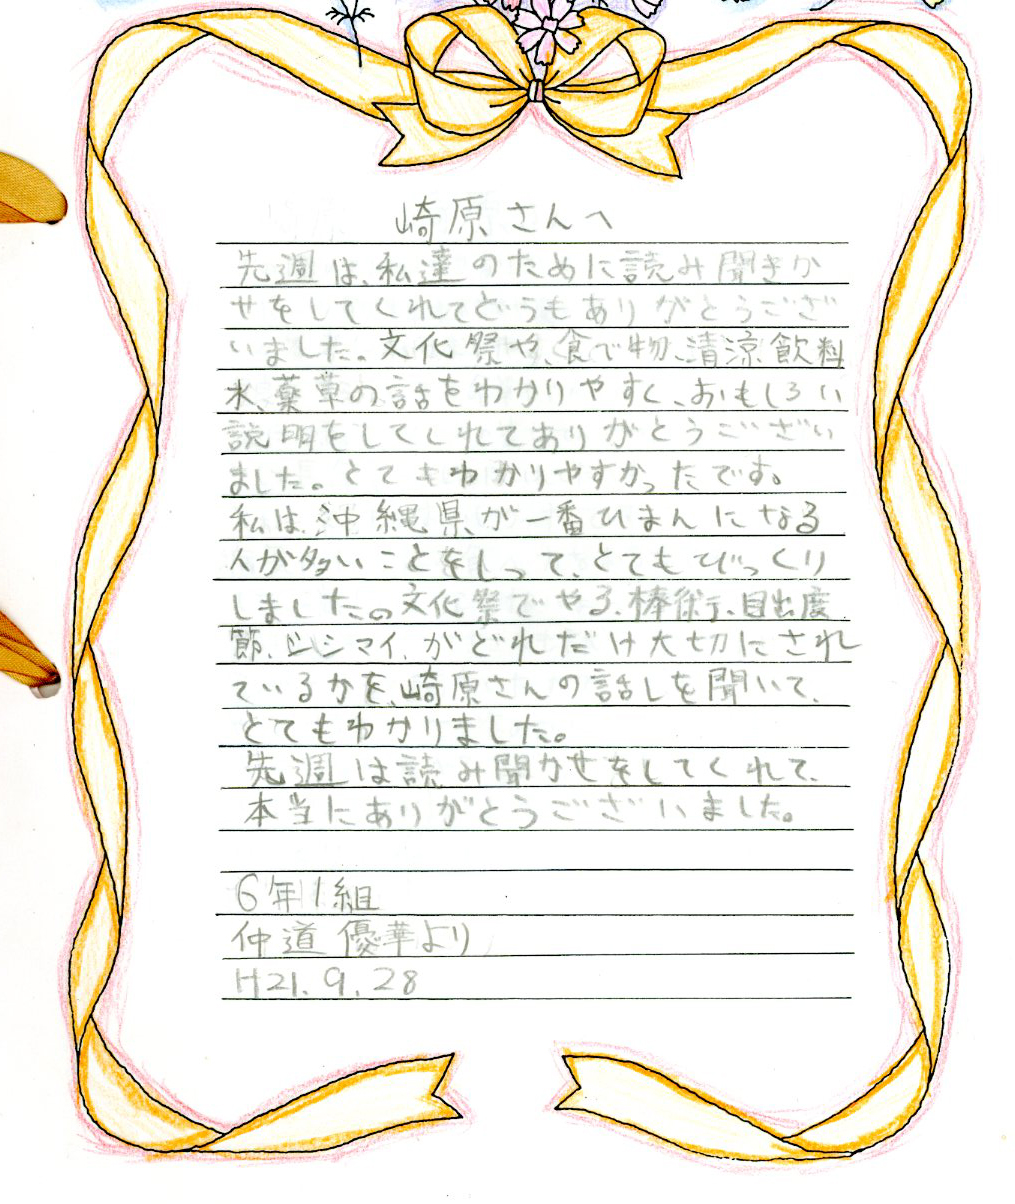 崎原さんへ
先週は、私達のために読み聞きか
せをしてくれてどうもありがとうござ
いました。文化祭や、食で物、清涼飲料
水、薬草の話をわかりやすく、おもしろい
説明をしてくれてありがとうござい
ました。とてもわかりやすかったです。
私は、沖縄県が一番ひまんになる
人が多いことをしって、とてもびっくり
しました。文化祭でやる、棒術、目出度
節、シシマイ、がどれだけ大切にされ
ているかを、崎原さんの話しを聞いて、
とてもわかりました。
先週は読み聞かせをしてくれて、
本当にありがとうございました。
6年1組
仲道優華より
H21.9.28